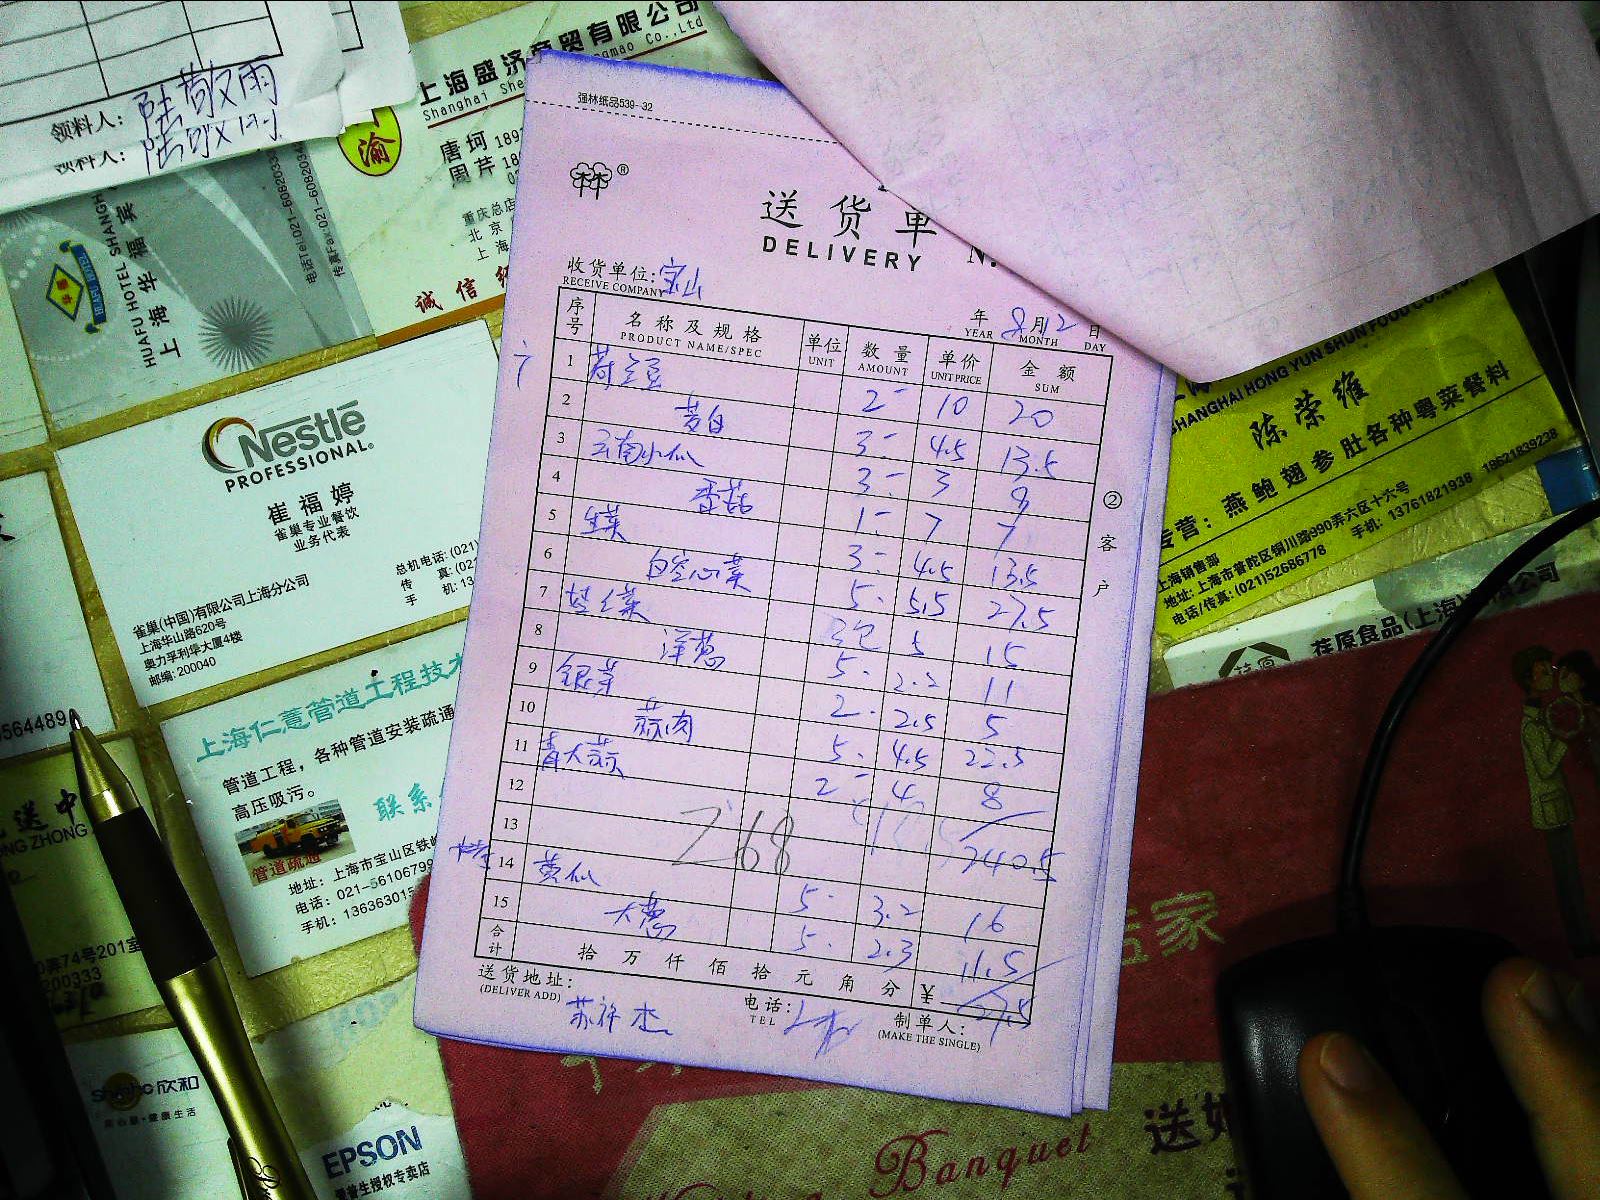 领料人: 陆敬雨
领料人:
上海盛济商贸有限公司
渝
唐坷
周芹
重庆总店
北京
上海
诚信
HUAFU HOTEL SHANGH
上海华福宾
电话Tel:021-6082033
传真Fax:021-6082034
强林纸品539-32
®
送货单
DELIVERY
收货单位: 宝山
RECEIVE COMPANY
年 8月12日
YEAR MONTH DAY
序号 名称及规格 单位 数量 单价 金额
PRODUCT NAME/SPEC UNIT AMOUNT UNIT PRICE SUM
1 荷兰豆 2- 10 20
2 茭白 3- 4.5 13.5
3 云南小瓜 3- 3 9
4 香菇 1- 7 7
5 生菜 3- 4.5 13.5
6 白空心菜 5- 5.5 27.5
7 3包 5 15
8 洋葱 5- 2.2 11
9 银芽 2- 2.5 5
10 蒜肉 5- 4.5 22.5
11 青大蒜 2- 4 8
12
13 268 240.5
14 黄瓜 5- 3.2 16
15 大葱 5- 2.3 11.5
合计 拾万仟佰拾元角分 ¥ 27.5
②客户
送货地址:
(DELIVER ADD)
电话:
TEL
制单人:
(MAKE THE SINGLE)
Nestlé
PROFESSIONAL®
崔福婷
雀巢专业餐饮
业务代表
总机电话: (021)
传 真: (02
手 机: 13
雀巢(中国)有限公司上海分公司
上海华山路620号
奥力孚利华大厦4楼
邮编: 200040
564489
上海仁薏管道工程技术
管道工程，各种管道安装疏通
高压吸污。
联系
管道疏通
地址: 上海市宝山区铁
电话: 021-5610679
手机: 1363630
送中
NG ZHONG
74号201室
200333
欣和
EPSON
爱普生授权专卖店
SHANGHAI HONG YUN SHUN FOOD CO.,LTD
陈荣维
专营: 燕鲍翅参肚各种粤菜餐料
上海销售部
地址: 上海市普陀区铜川路990弄六区十六号
电话/传真: (021)52686778 手机: 13761821938 18621839238
荏原食品(上海)有限公司
家
Banquet
送